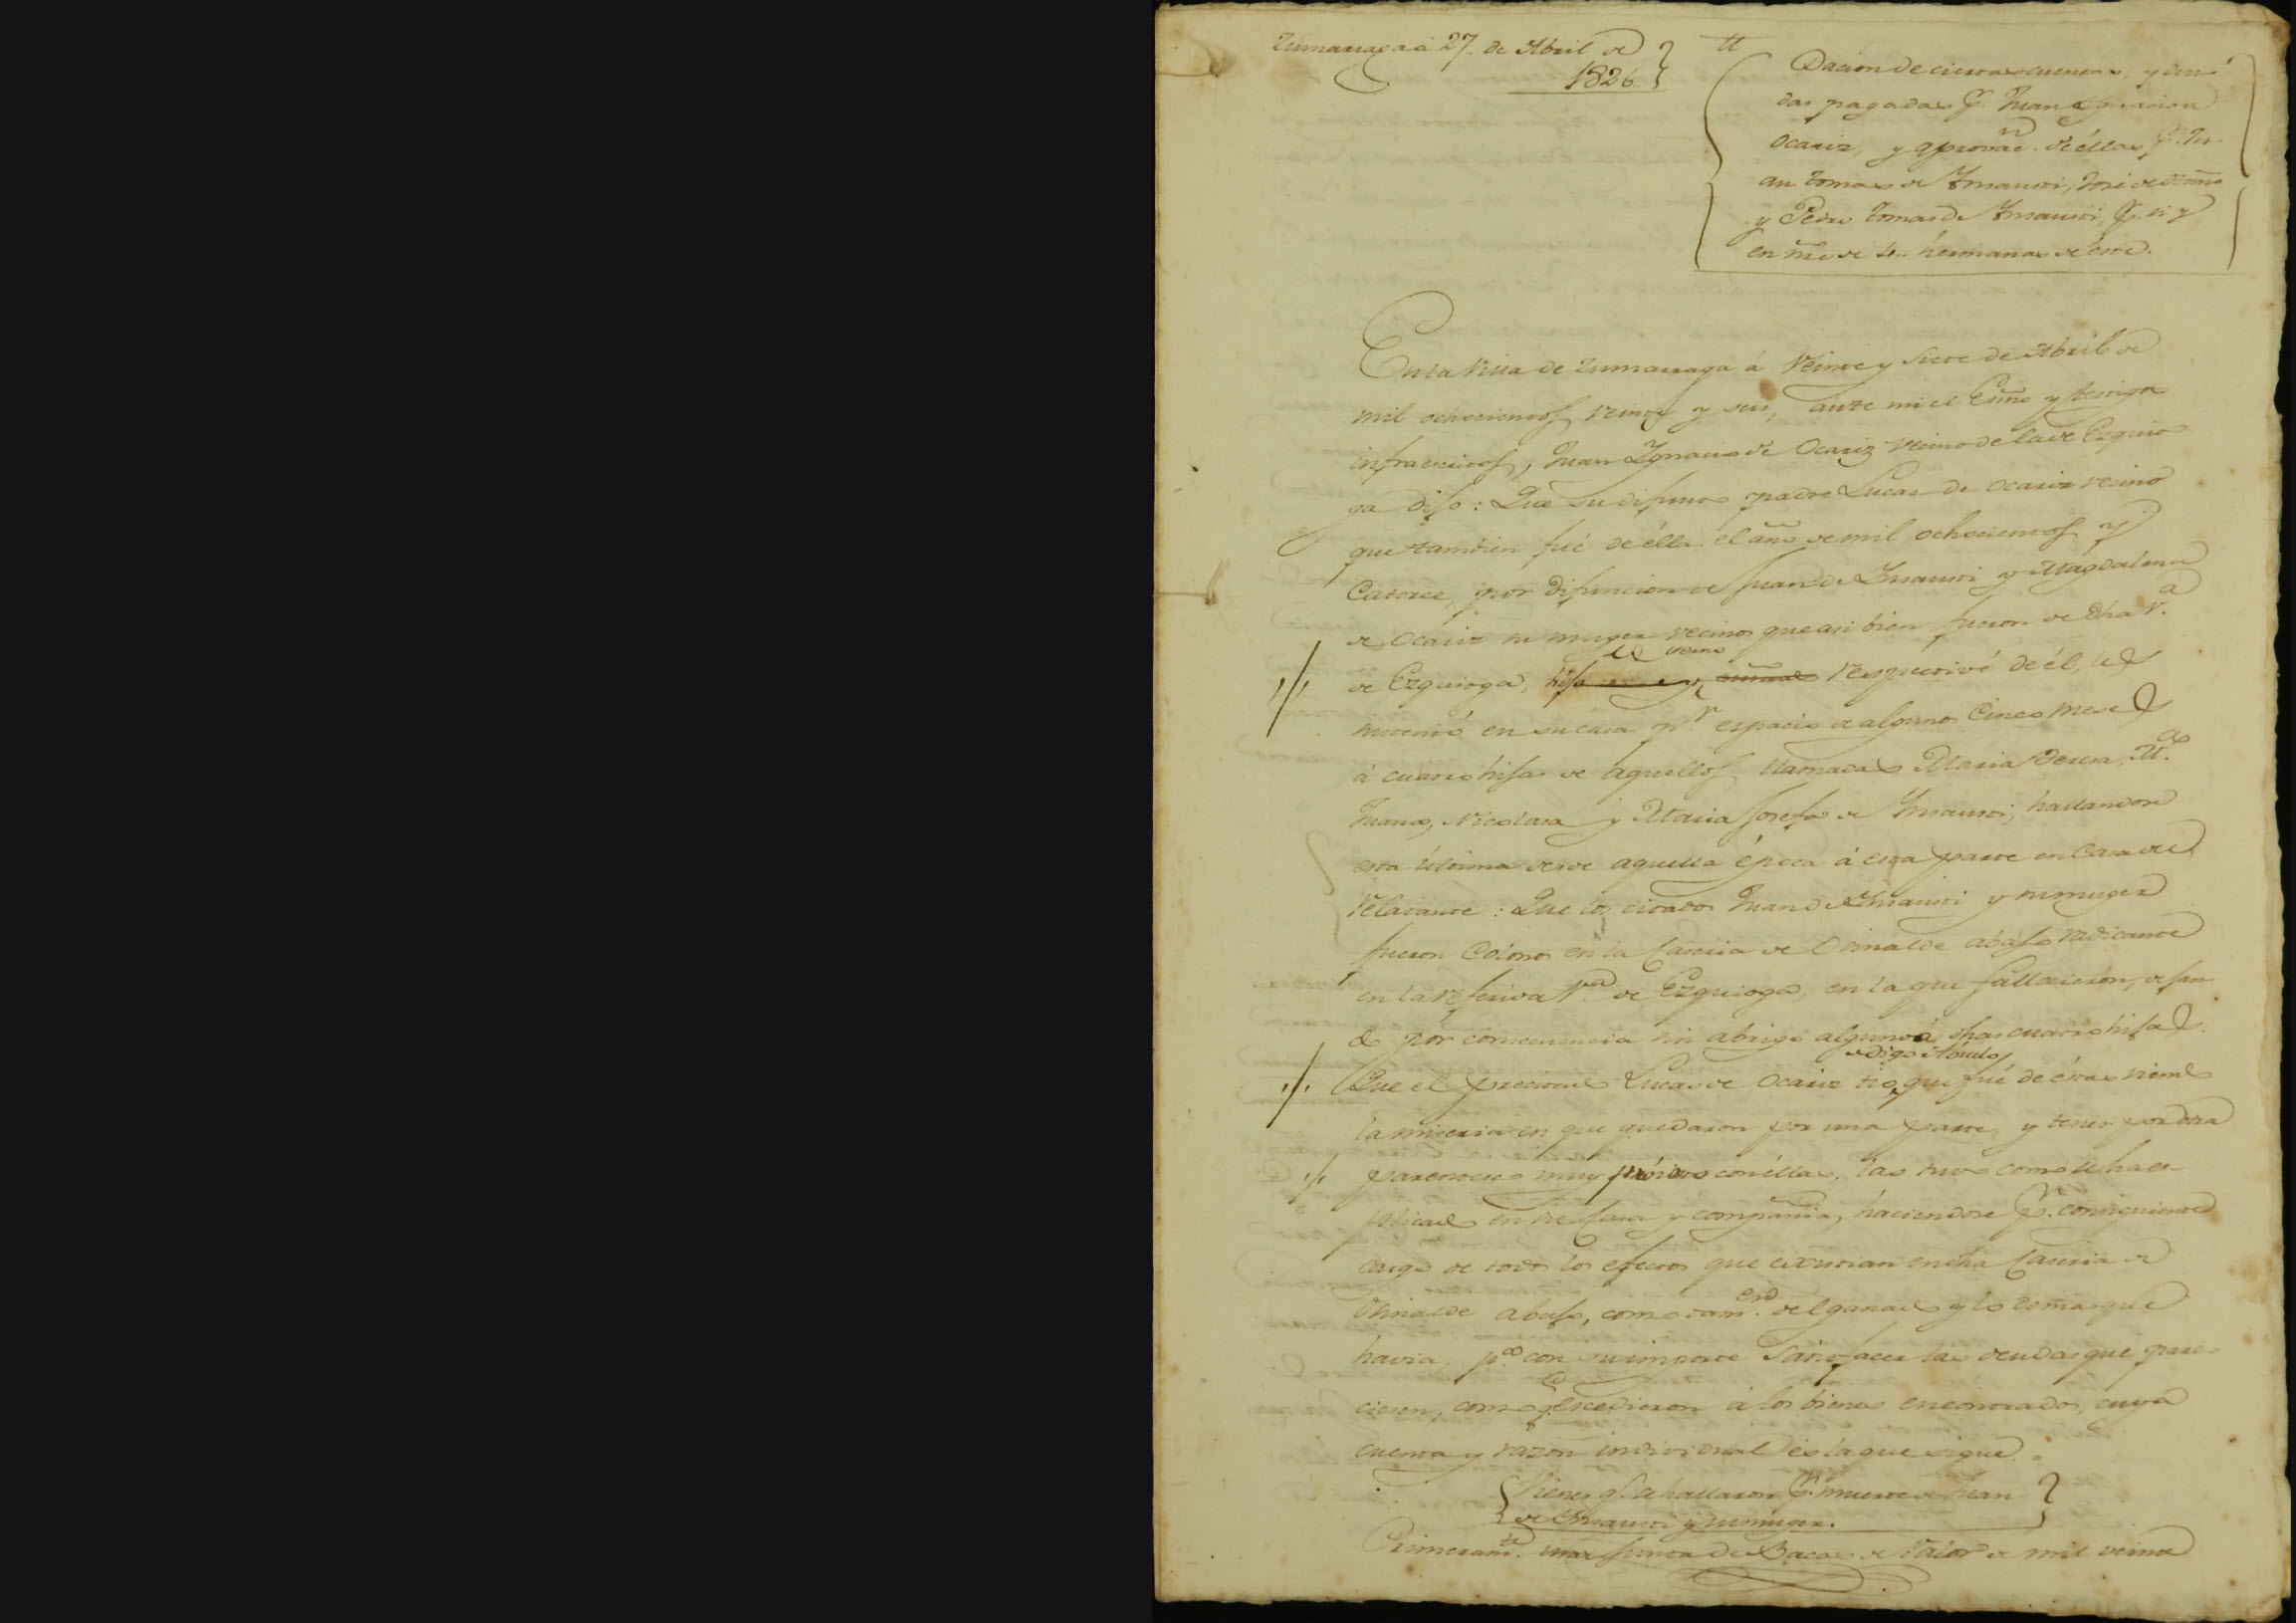 Zumarraga á 27. de Abril de
1826.
Dacion de ciertas cuentas, y deu-
das pagadas p.r Juan Ignacio de
Ocariz, y aprovac.n de éllas p.r Ju-
an Tomas de Insausti, José de
y Pedro Tomas de Insausti, p.r si y
en nre. de hermanas de este.
En la Villa de Zumarraga á Veinte y Siete de Abril de
mil ochocientos veinte y seis, ante mi el Esno y testigos
infraescritos, Juan Ignacio de Ocariz vecino de la de Ezquio-
ga dijo: Que su difunto padre Lucas de Ocariz vecino
que tambien fué de élla, el año de mil ochocientos y
Catorce, por difuncion de Juan de Insausti y Magdalena
de Ocariz su muger vecinos que asi bien fueron de dha V.a
de Ezquioga, hija y respectivé de él,
mantuvo en su casa p.r espacio de algunos Cinco meses
á cuatro hijas de aquellos llamadas Maria Teresa, M.a
Juana, Nicolasa y Maria Josefa de Insausti, hallandose
esta última desde aquella época á esta parte en Casa del
Relatante: Que los citados Juan de Insausti y su muger
fueron Colonos en la Caseria de Oñinalde abajo radicante
en la referida V.a de Ezquioga, en la que fallecieron, dejan-
do por consecuencia sin abrigo alguno á dhas cuatro hijas.
digo Abuelo
Que el precitado Lucas de Ocariz tio, que fué de éstas viendo
la miseria en que quedaron por una parte, y tener por otra
parentesco muy próximo con éllas, las tuvo como se ha es-
plicado en su Casa y compañia, haciendose p.r consiguiente
cargo de todos los efectos que existian en dha Caseria de
Oñinalde abajo, como tam.en del ganado y lo demas que
havia, p.a con su importe satisfacer las deudas que pare-
ciesen, como q.e escedieron á los bienes encontrados, cuya
cuenta y razon individual es la que sigue.
Bienes q.e se hallaron p.r muerte de Juan
de Insausti y su muger.
Primeram.te una junta de Bacas de Valor de mil veinte